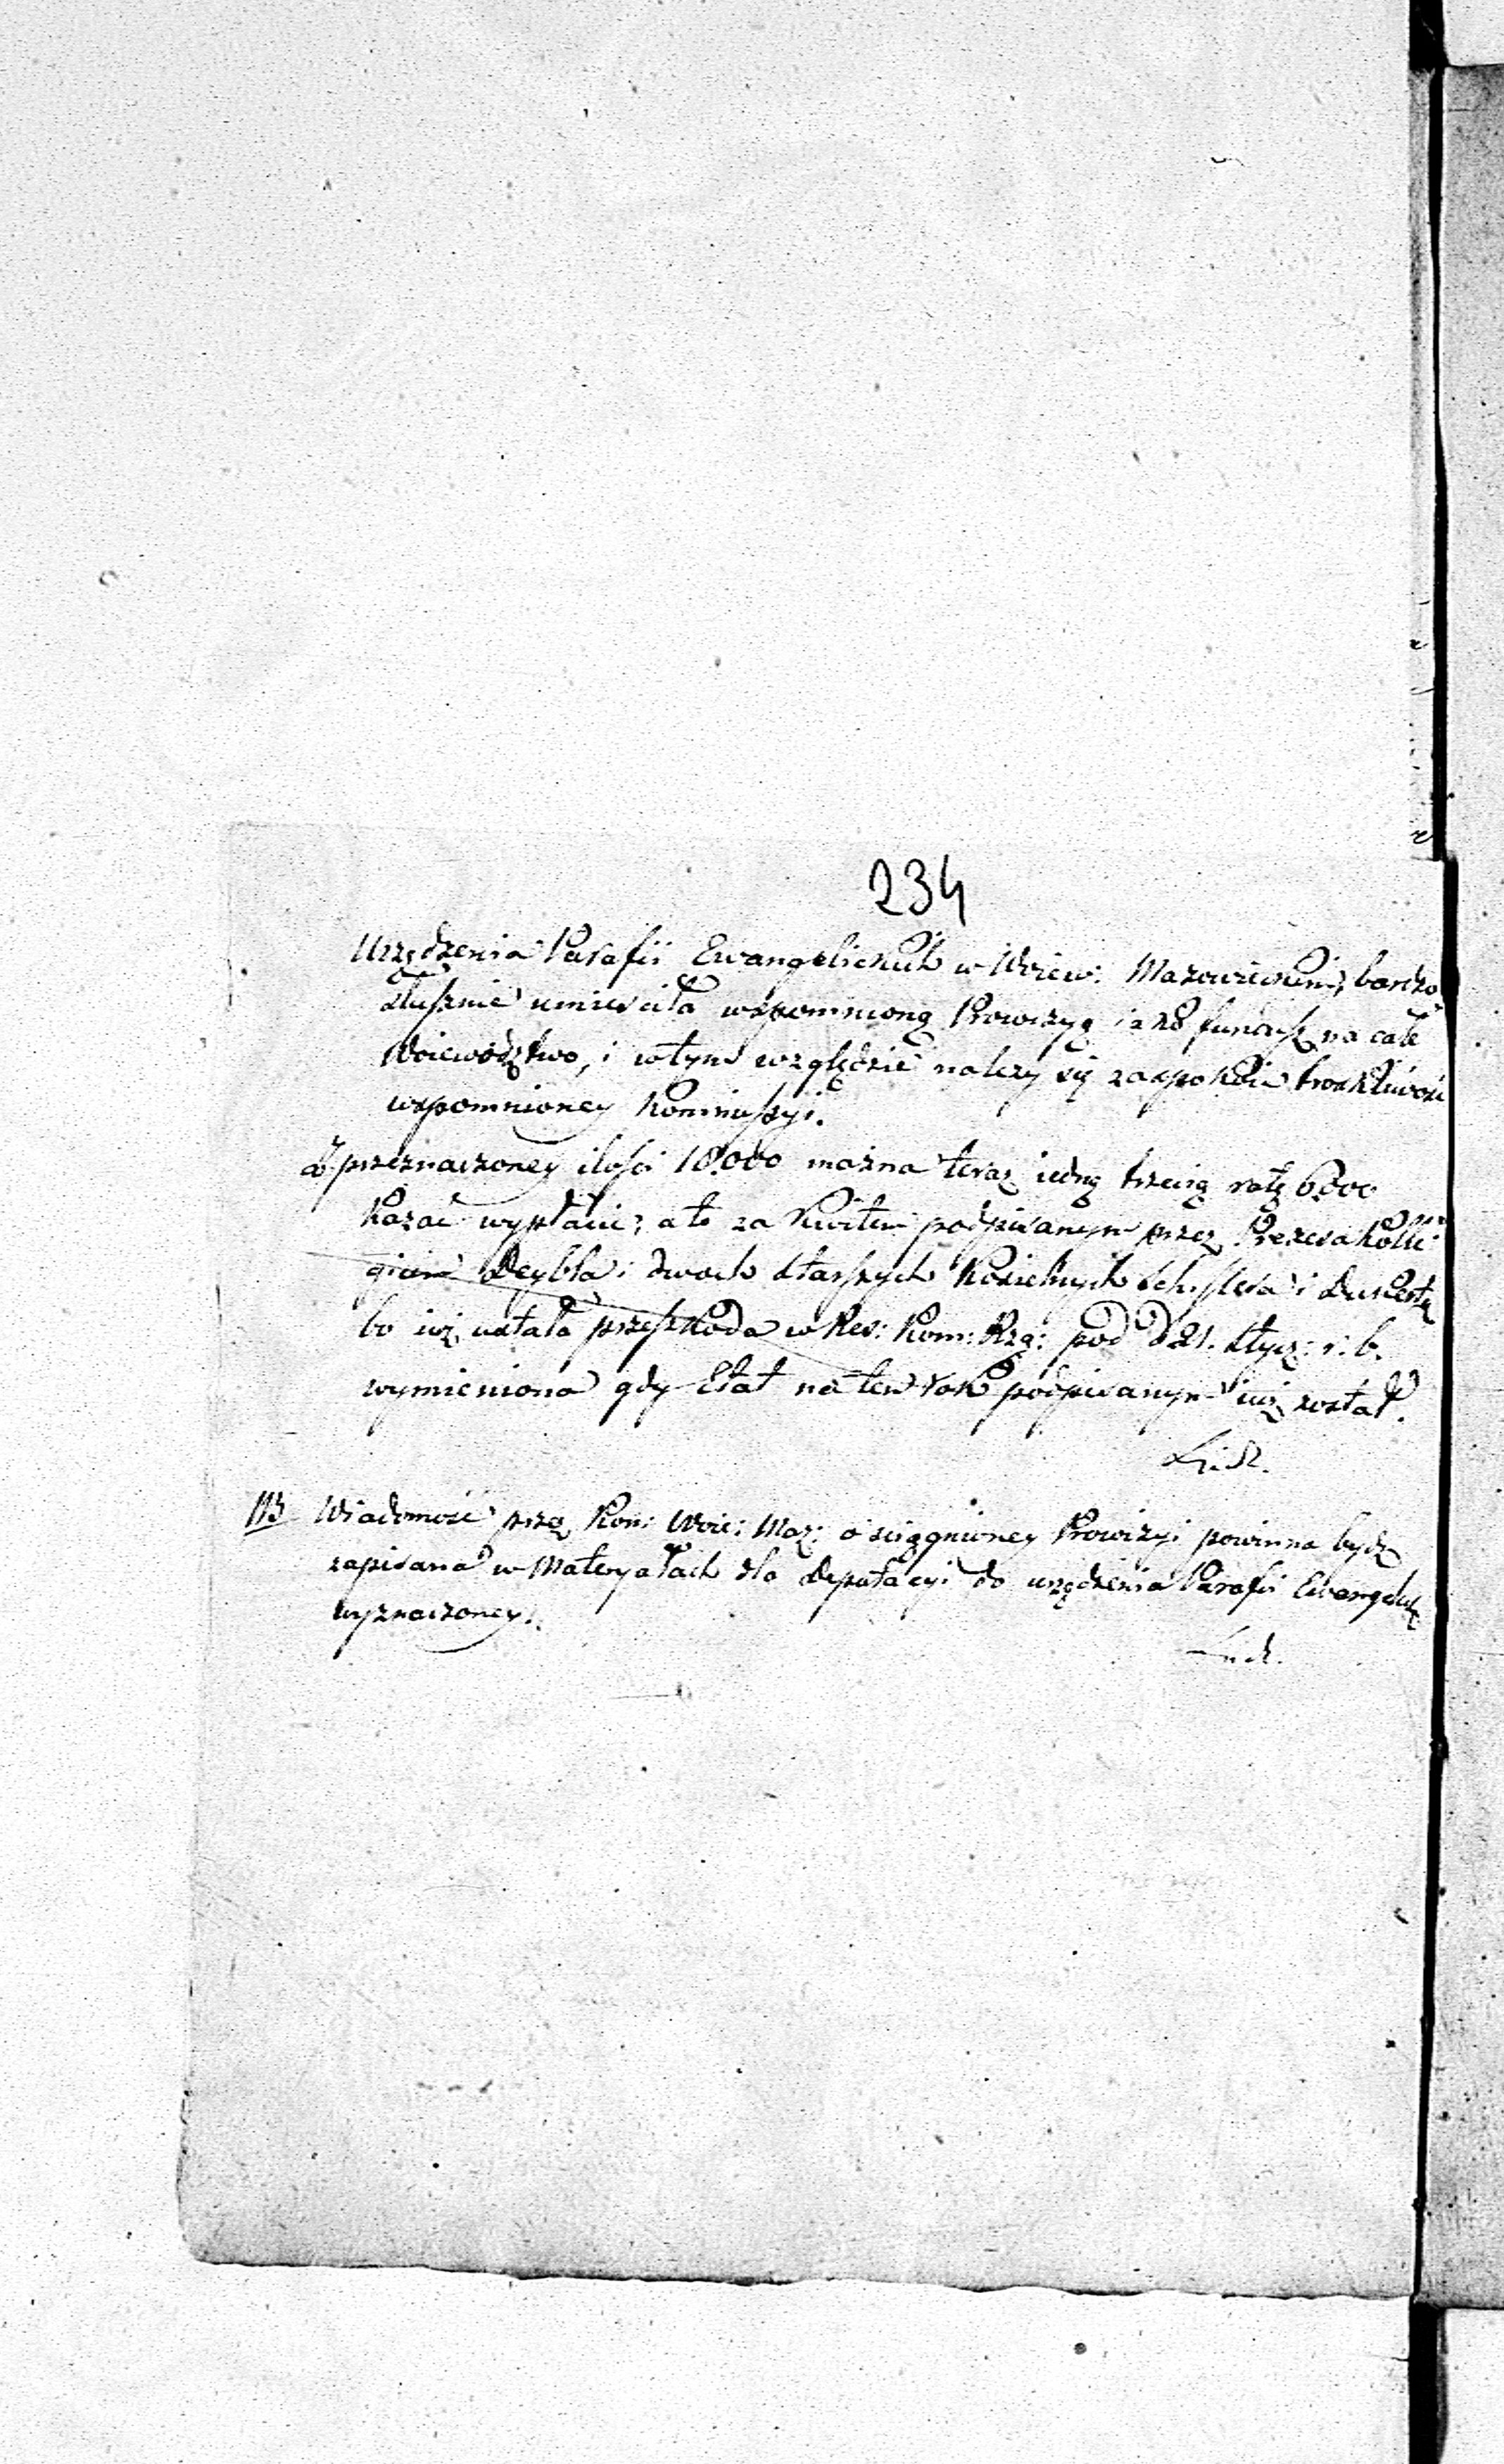 234
Urządzenia Parafii Ewangelickich w Woiew: Mazowieckim, bardzo
słusznie umieściła wspomnioną Prowizyą iako fundusz na całe
Woiewództwo, i w tym względzie należy się zaspokoić troskliwość
wspomnioney Kommissyi.
2. przeznaczoney ilości 18.000 można teraz iedną trzecią ratę 6.000
kazać wypłacić; a to za kwitem podpisanym przez Prezesa Kolle
gium Deybla i dwoch Starszych Kościelnych i
bo iuż ustała przeszkoda w Res: Kom: Rzą: pod d 21. Stycz: r: b.
wymieniona gdy Etat na ten rok podpisanym iuż został.
NB Wiadomość przez Kom: Woie: Maz: o ściągnioney Prowizyi powinna bydź
zapisana w Materyałach dla Deputacyi do urządzenia Parafii Ewangelick
wyznaczoney.